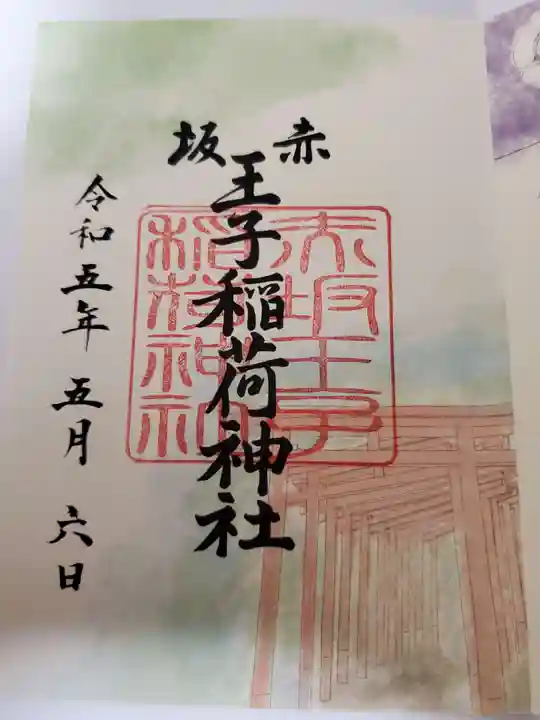 赤坂
王子稲荷神社
赤坂王子
稲荷神社
令和五年 五月 六日